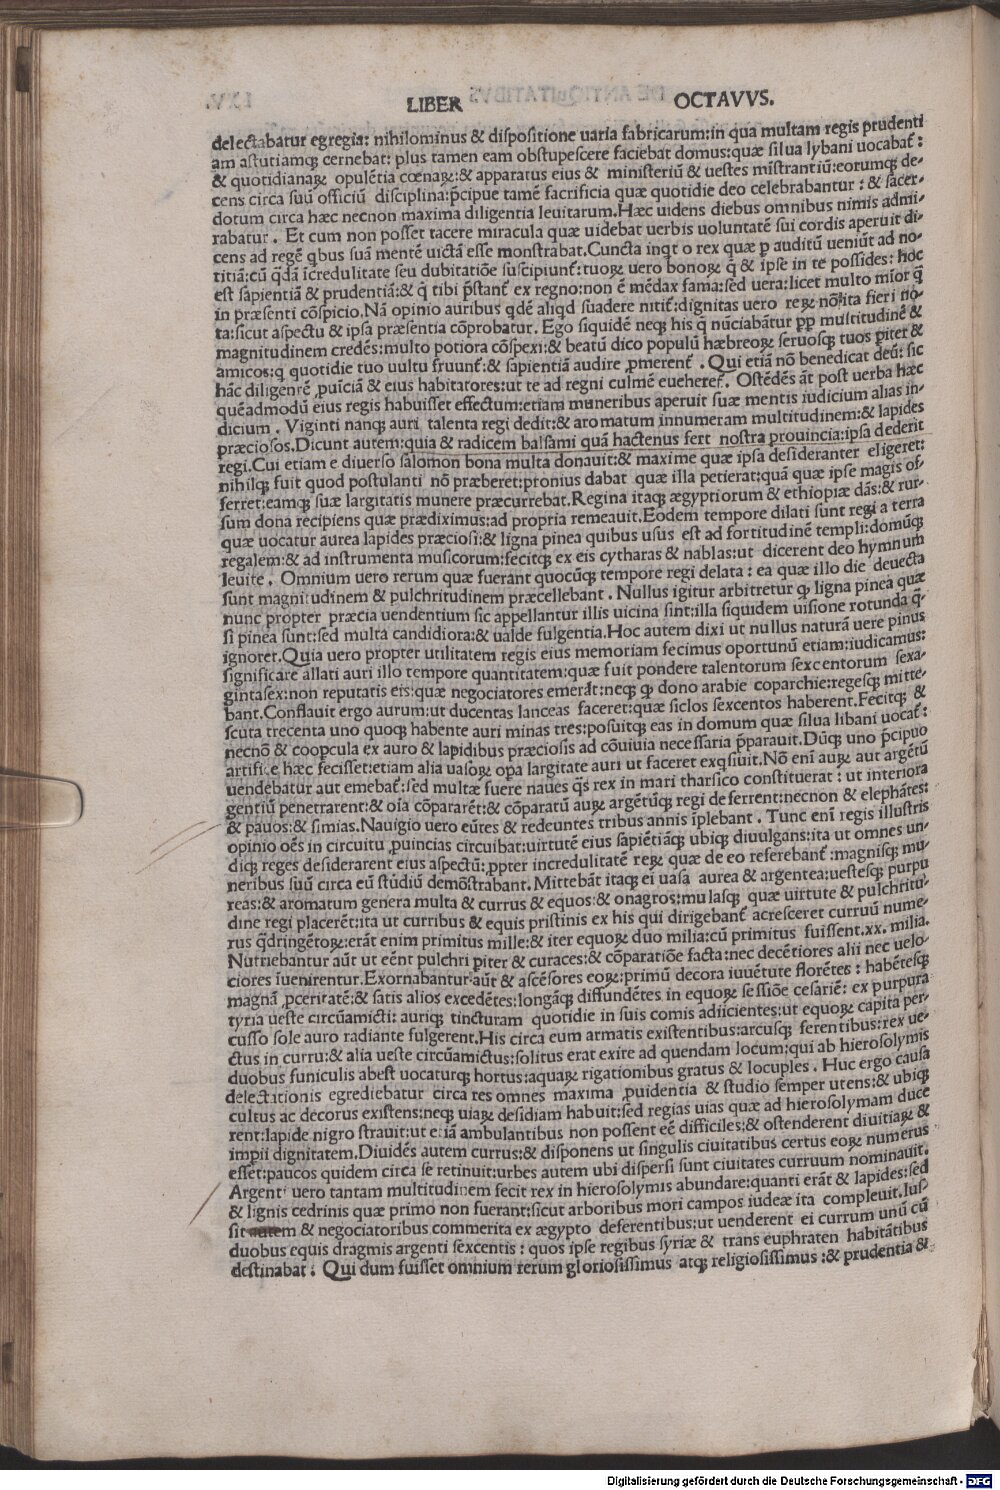 LIBER OCTAVVS.
delectabatur egregia: nihilominus & dispositione uaria fabricarum:in qua multam regis prudenti
am astutiamqꝫ cernebat: plus tamen eam obstupescere faciebat domus:quæ silua lybani uocabat᷑:
& quotidianaꝝ opulẽtia cœnaꝝ:& apparatus eius & ministeriũ & uestes mĩstrantiũ:eorumqꝫ de-
cens circa suũ officiũ disciplina:p̃cipue tamẽ sacrificia quæ quotidie deo celebrabantur: & sacer-
dotum circa hæc necnon maxima diligentia leuitarum.Hæc uidens diebus omnibus nimis admi-
rabatur. Et cum non posset tacere miracula quæ uidebat uerbis uoluntatẽ sui cordis aperuit di-
cens ad regẽ qbus suã mentẽ uictã esse monstrabat.Cuncta inqt o rex quæ ꝑ auditũ ueniũt ad no-
titiã:cũ q̃dã ĩcredulitate seu dubitatiõe suscipiunt᷑:tuoꝝ uero bonoꝝ q̃ & ipse in te possides: hoc
est sapientiã & prudentiã:& q̃ tibi p̃stant᷑ ex regno:non ẽ mẽdax fama:sed uera:licet multo mĩor q̃
in præsenti cõspicio.Nã opinio auribus qdẽ aliqd suadere nitit᷑:dignitas uero reꝝ nõ ita fieri no-
ta:sicut aspectu & ipsa præsentia cõprobatur. Ego siquidẽ neqꝫ his q̃ nũciabãtur ꝓp multitudinẽ &
magnitudinem credẽs:multo potiora cõspexi:& beatũ dico populũ hæbreoꝝ seruosqꝫ tuos ꝑiter &
amicos:q quotidie tuo uultu fruunt᷑:& sapientiã audire ꝓmerent᷑. Qui etiã nõ benedicat deũ: sic
hãc diligentẽ ꝓuĩciã & eius habitatores:ut te ad regni culmẽ eueheret᷑. Ostẽdẽs ãt post uerba hæc
quẽadmodũ eius regis habuisset effectum:etiam muneribus aperuit suæ mentis iudicium alias in-
dicium. Viginti nanqꝫ auri talenta regi dedit:& aromatum innumeram multitudinem:& lapides
præciosos.Dicunt autem:quia & radicem balsami quã hactenus fert nostra prouincia:ipsa dederit
regi.Cui etiam e diuerso salomon bona multa donauit:& maxime quæ ipsa desideranter eligeret:
nihilqꝫ fuit quod postulanti nõ præberet:pronius dabat quæ illa petierat:quã quæ ipse magis of-
ferret:eamqꝫ suæ largitatis munere præcurrebat.Regina itaqꝫ ægyptiorum & ethiopiæ dãs:& rur-
sum dona recipiens quæ prædiximus:ad propria remeauit.Eodem tempore dilati sunt regi a terra
quæ uocatur aurea lapides præciosi:& ligna pinea quibus usus est ad fortitudinẽ templi:domũqꝫ
regalem:& ad instrumenta musicorum:fecitqꝫ ex eis cytharas & nablas:ut dicerent deo hymnum
leuite. Omnium uero rerum quæ fuerant quocũqꝫ tempore regi delata: ea quæ illo die deuecta
sunt magnitudinem & pulchritudinem præcellebant. Nullus igitur arbitretur ꝙ ligna pinea quæ
nunc propter præcia uendentium sic appellantur illis uicina sint:illa siquidem uisione rotunda q̃-
si pinea sunt:sed multa candidiora:& ualde fulgentia.Hoc autem dixi ut nullus naturã uere pinus
ignoret.Quia uero propter utilitatem regis eius memoriam fecimus oportunũ etiam:iudicamus:
significare allati auri illo tempore quantitatem:quæ fuit pondere talentorum sexcentorum sexa-
gintasex:non reputatis eis:quæ negociatores emerãt:neqꝫ ꝙ dono arabie coparchie:regesqꝫ mitte-
bant.Conflauit ergo aurum:ut ducentas lanceas faceret:quæ siclos sexcentos haberent.Fecitqꝫ &
scuta trecenta uno quoqꝫ habente auri minas tres:posuitqꝫ eas in domum quæ silua libani uocat᷑:
necnõ & coopcula ex auro & lapidibus præciosis ad cõuiuia necessaria p̃parauit.Dũqꝫ uno p̃cipuo
artifice hæc fecisset:etiam alia uasoꝝ oꝑa largitate auri ut faceret exqsiuit.Nõ enĩ auꝝ aut argẽtũ
uendebatur aut emebat᷑:sed multæ fuere naues q̃s rex in mari tharsico constituerat: ut interiora
gentiũ penetrarent:& oĩa cõpararẽt:& cõparatũ auꝝ argẽtũqꝫ regi deferrent:necnon & elephãtes:
& pauos:& simias.Nauigio uero eũtes & redeuntes tribus annis ĩplebant. Tunc enĩ regis illustris
opinio oẽs in circuitu ꝓuincias circuibat:uirtutẽ eius sapiẽtiãqꝫ ubiqꝫ diuulgans:ita ut omnes un-
diqꝫ reges desiderarent eius aspectũ:ꝓpter incredulitatẽ reꝝ quæ de eo referebant᷑:magnisqꝫ mu-
neribus suũ circa eũ stúdiũ demõstrabant.Mittebãt itaqꝫ ei uasa aurea & argentea:uestesqꝫ purpu
reas:& aromatum genera multa & currus & equos:& onagros:mulasqꝫ quæ uirtute & pulchritu-
dine regi placerẽt:ita ut curribus & equis pristinis ex his qui dirigebant᷑ acresceret curruũ nume-
rus q̃dringẽtoꝝ:erãt enim primitus mille:& iter equoꝝ duo milia:cũ primitus fuissent.xx. milia.
Nutriebantur aũt ut eẽnt pulchri ꝑiter & curaces:& cõparatiõe facta:nec decẽtiores alii nec uelo-
ciores ĩuenirentur.Exornabantur aũt & ascẽsores eoꝝ:primũ decora iuuẽtute florẽtes: habẽtesqꝫ
magnã ꝓceritatẽ:& satis alios excedẽtes:longãqꝫ diffundẽtes in equoꝝ sessiõe cesariẽ: ex purpura
tyria ueste circũamicti: auriqꝫ tincturam quotidie in suis comis adiicientes:ut equoꝝ capita per-
cusso sole auro radiante fulgerent.His circa eum armatis existentibus:arcusqꝫ ferentibus:rex ue-
ctus in curru:& alia ueste circũamictus:solitus erat exire ad quendam locum:qui ab hierosolymis
duobus funiculis abest uocaturqꝫ hortus:aquaꝝ rigationibus gratus & locuples. Huc ergo causa
delectitionis egrediebatur circa res omnes maxima ꝓuidentia & studio semper utens:& ubiqꝫ
cultus ac decorus existens:neqꝫ uiaꝝ desidiam habuit:sed regias uias quæ ad hierosolymam duce
rent:lapide nigro strauit:ut etiã ambulantibus non possent eẽ difficiles:& ostenderent diuitiaꝝ &
impii dignitatem.Diuidẽs autem currus:& disponens ut singulis ciuitatibus certus eoꝝ numerus
esset:paucos quidem circa se retinuit:urbes autem ubi dispersi sunt ciuitates curruum nominauit.
Argenti uero tantam multitudinem fecit rex in hierosolymis abundare:quanti erãt & lapides:sed
& lignis cedrinis quæ primo non fuerant:sicut arboribus mori campos iudeæ ita compleuit.Ius-
sit autem & negociatoribus commerita ex ægypto deferentibus:ut uenderent ei currum unũ cũ
duobus equis dragmis argenti sexcentis: quos ipse regibus syriæ & trans euphraten habitãtibus
destinabat. Qui dum fuisset omnium rerum gloriosissimus atqꝫ religiosissimus:& prudentia &
Digitalisierung gefördert durch die Deutsche Forschungsgemeinschaft - DFG